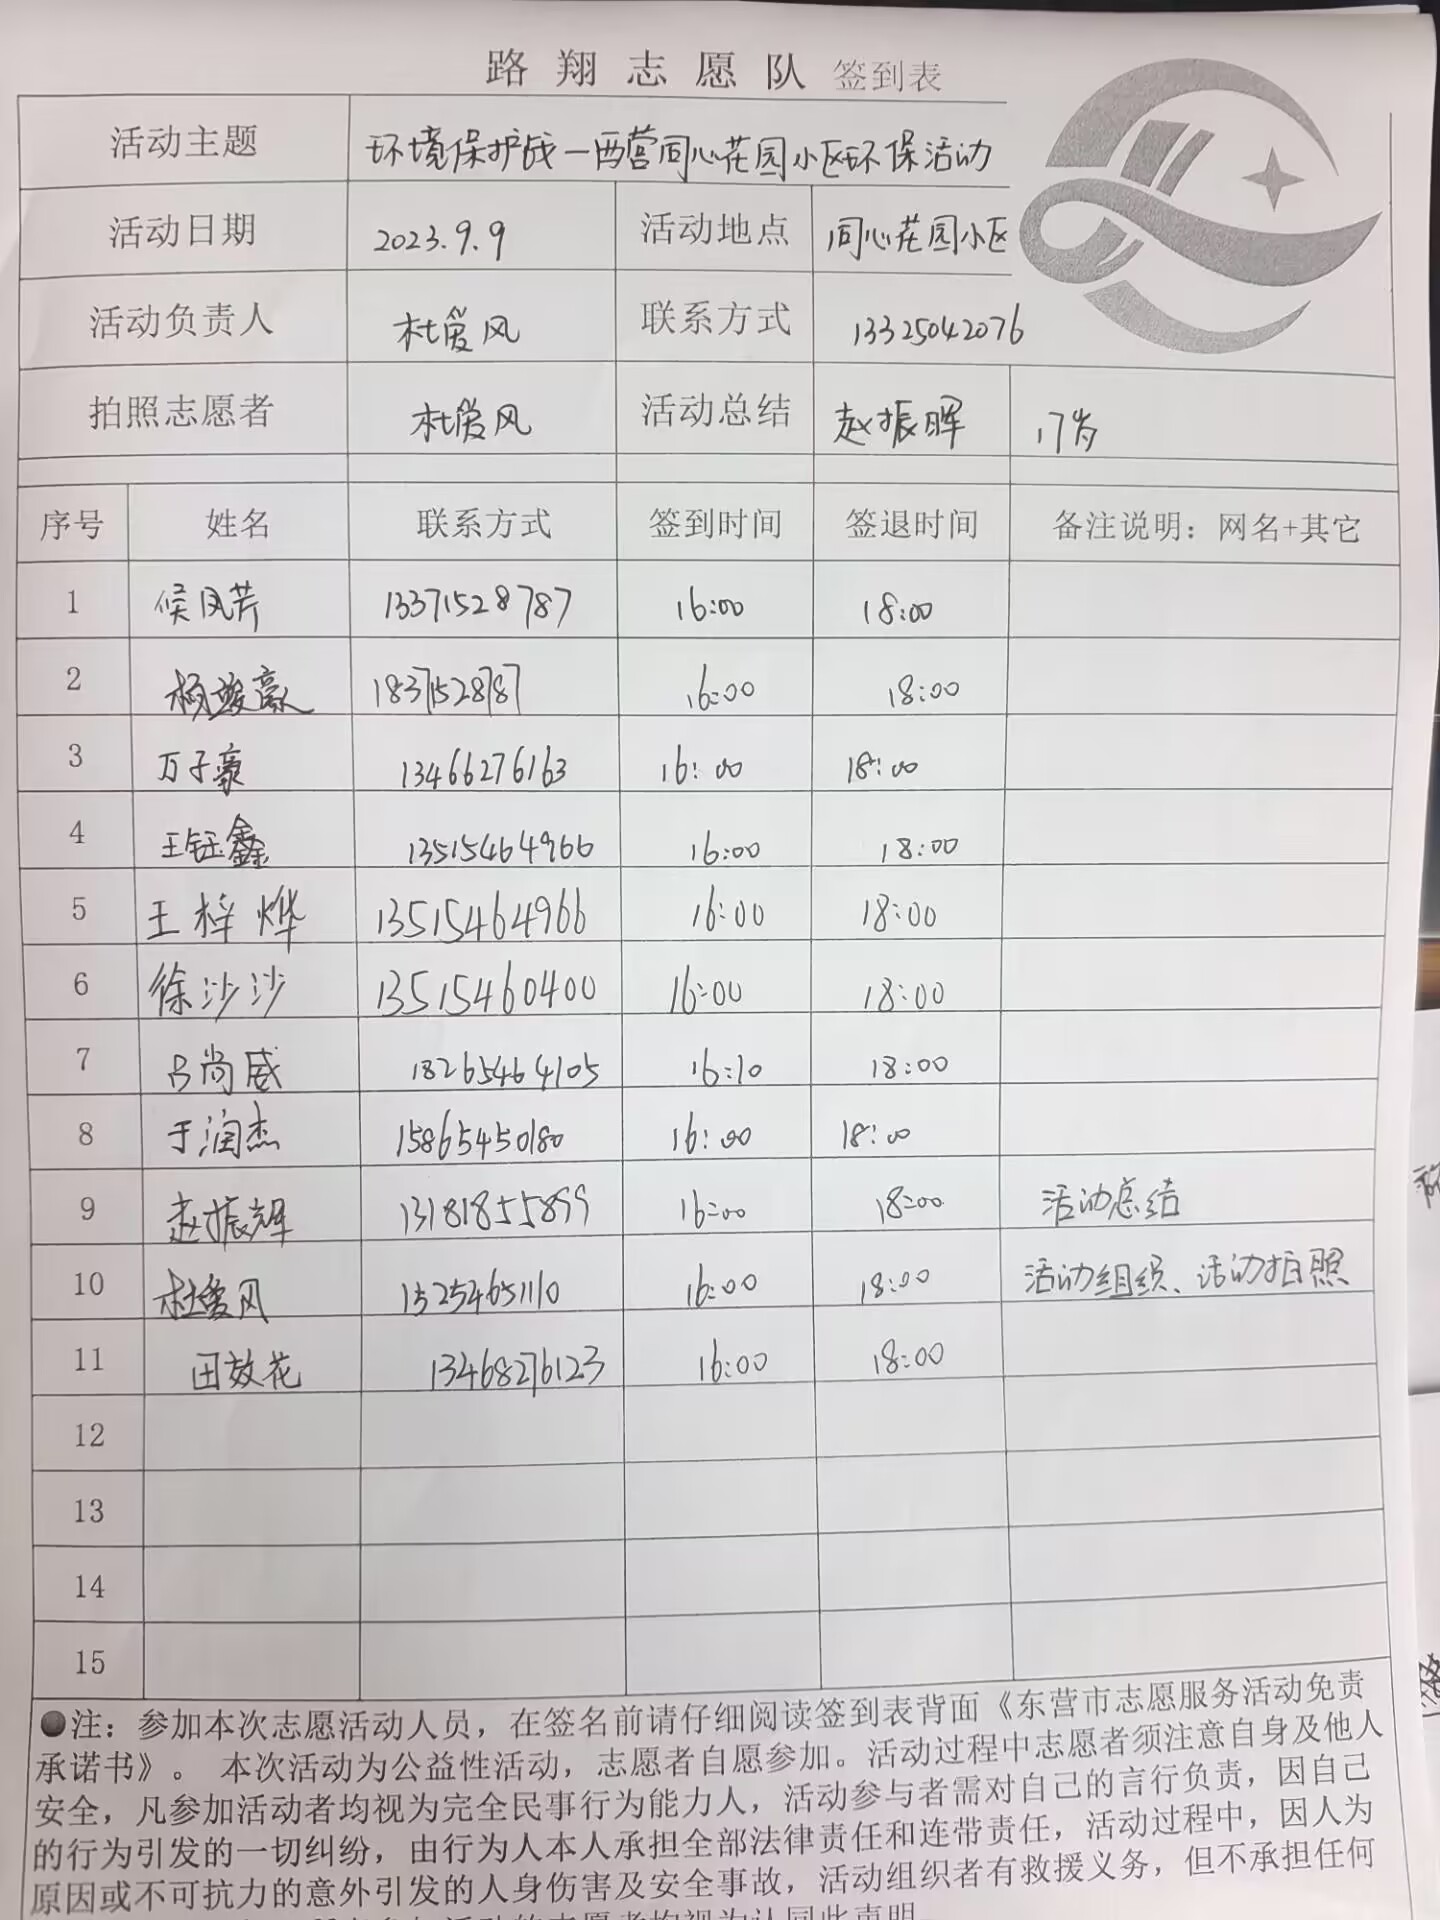 路翔志愿队 签到表
活动主题 环境保护战一西营同心花园小区环保活动
活动日期 2023.9.9 活动地点 同心花园小区
活动负责人 杜爱风 联系方式 13325042076
拍照志愿者 杜爱风 活动总结 赵振晖 17岁
序号 姓名 联系方式 签到时间 签退时间 备注说明：网名+其它
1 侯凤芹 13371528787 16:00 18:00
2 杨竣豪 18371528787 16:00 18:00
3 万子豪 13466276163 16:00 18:00
4 王钰鑫 13515464966 16:00 18:00
5 王梓烨 13515464966 16:00 18:00
6 徐沙沙 13515460400 16:00 18:00
7 吕尚威 18265464105 16:10 18:00
8 于润杰 15865450180 16:00 18:00
9 赵振辉 13181855899 16:00 18:00 活动总结
10 杜爱风 15254651110 16:00 18:00 活动组织、活动拍照
11 田效花 13468276123 16:00 18:00
12
13
14
15
●注：参加本次志愿活动人员，在签名前请仔细阅读签到表背面《东营市志愿服务活动免责
承诺书》。 本次活动为公益性活动，志愿者自愿参加。活动过程中志愿者须注意自身及他人
安全，凡参加活动者均视为完全民事行为能力人，活动参与者需对自己的言行负责，因自己
的行为引发的一切纠纷，由行为人本人承担全部法律责任和连带责任，活动过程中，因人为
原因或不可抗力的意外引发的人身伤害及安全事故，活动组织者有救援义务，但不承担任何
活动的志愿者均视为认同此声明